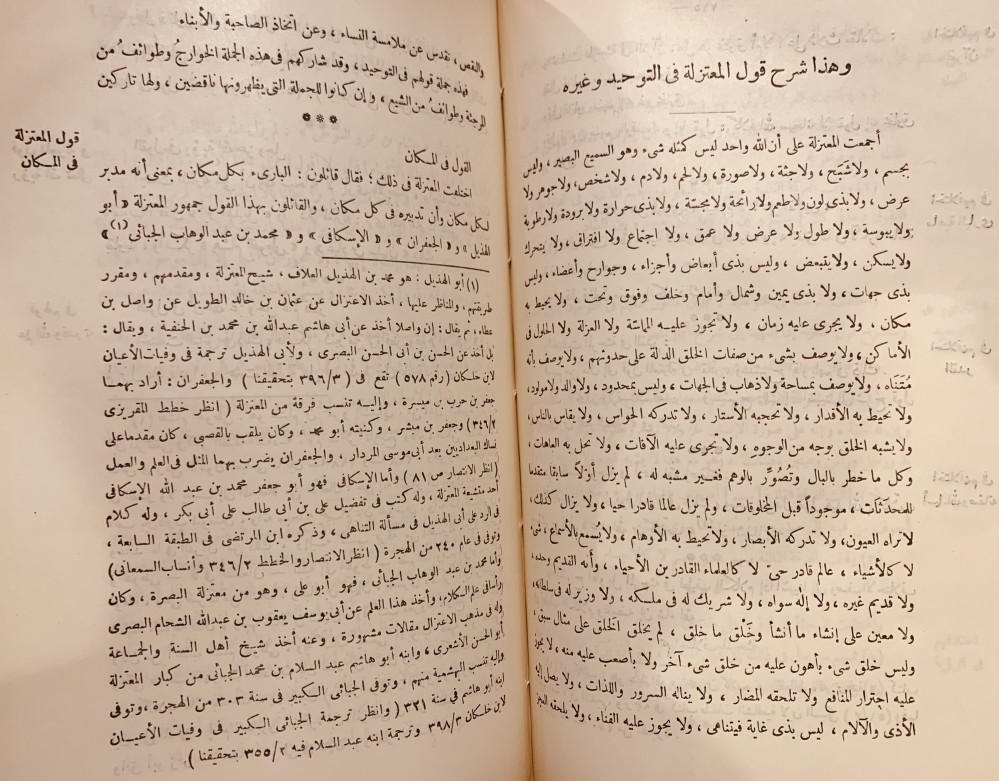 وهذا شرح قول المعتزلة فى التوحيد وغيره
أجمعت المعتزلة على أن الله واحد ليس كمثله شىء وهو السميع البصير ، وليس
بجسم ، ولا شَبَح ، ولا جثة ، ولا صورة ، ولا لحم ، ولا دم ، ولا شخص ، ولا جوهر ولا
عرض ، ولا بذى لون ولا طعم ولا رائحة ولا مجسّة ، ولا بذى حرارة ولا برودة ولا رطوبة
ولا يبوسة ، ولا طول ولا عرض ولا عمق ، ولا اجتماع ولا افتراق ، ولا يتحرك
ولا يسكن ، ولا يتبعض ، وليس بذى أبعاض وأجزاء ، وجوارح وأعضاء ، وليس
بذى جهات ، ولا بذى يمين وشمال وأمام وخلف وفوق وتحت ، ولا يحيط به
مكان ، ولا يجرى عليه زمان ، ولا تجوز عليه المماسّة ولا العزلة ولا الحلول فى
الأماكن ، ولا يوصف بشىء من صفات الخلق الدالة على حدوثهم ، ولا يوصف بأنه
مُتَنَاهٍ ، ولا يوصف بمساحة ولا ذهاب فى الجهات ، وليس بمحدود ، ولا والد ولا مولود ،
ولا تحيط به الأقدار ، ولا تحجبه الأستار ، ولا تدركه الحواس ، ولا يقاس بالناس ،
ولا يشبه الخلق بوجه من الوجوه ، ولا تجرى عليه الآفات ، ولا تحل به العاهات ،
وكل ما خطر بالبال وتُصُوِّر بالوهم فغير مشبه له ، لم يزل أولا سابقا متقدما
للمحدَثَات ، موجوداً قبل المخلوقات ، ولم يزل عالما قادرا حيا ، ولا يزال كذلك ،
لا تراه العيون ، ولا تدركه الأبصار ، ولا تحيط به الأوهام ، ولا يُسمع بالأسماع ، شىء
لا كالأشياء ، عالم قادر حىّ لا كالعلماء القادرين الأحياء ، وأنه القديم وحده ،
ولا قديم غيره ، ولا إلٰه سواه ، ولا شريك له فى ملكه ، ولا وزير له فى سلطانه ،
ولا معين على إنشاء ما أنشأ وخَلْق ما خلق ، لم يخلق الخلق على مثال سبق ،
وليس خلق شىء بأهون عليه من خلق شىء آخر ولا بأصعب عليه منه ، لا يجوز
عليه اجترار المنافع ولا تلحقه المضار ، ولا يناله السرور واللذات ، ولا يصل إليه
الأذى والآلام ، ليس بذى غاية فيتناهى ، ولا يجوز عليه الفناء ، ولا يلحقه العجز
والنقص ، تقدس عن ملامسة النساء ، وعن اتخاذ الصاحبة والأبناء
فهذه جملة قولهم فى التوحيد ، وقد شاركهم فى هذه الجملة الخوارجُ وطوائفُ من
المرجئة وطوائفُ من الشيع ، وإن كانوا للجملة التى يظهرونها ناقضين ، ولها تاركين
***
قول المعتزلة
فى المكان
القول فى المكان
اختلفت المعتزلة فى ذلك ؛ فقال قائلون : البارىء بكل مكان ، بمعنى أنه مدبر
لكل مكان وأن تدبيره فى كل مكان ، والقائلون بهذا القول جمهور المعتزلة « أبو
الهذيل » و « الجعفران » و « الإسكافى » و « محمد بن عبد الوهاب الجبائى (١) »
(١) أبو الهذيل : هو محمد بن الهذيل العلاف ، شيخ المعتزلة ، ومقدمهم ، ومقرر
طريقتهم ، والمناظر عليها ، أخذ الاعتزال عن عثمان بن خالد الطويل عن واصل بن
عطاء ، ثم يقال : إن واصلا أخذ عن أبى هاشم عبدالله بن محمد بن الحنفية ، ويقال :
بل أخذ عن الحسن بن أبى الحسن البصرى ، ولأبى الهذيل ترجمة فى وفيات الأعيان
لابن خلكان ( رقم ٥٧٨ ) تقع فى ( ٣/٣٩٦ بتحقيقنا ) والجعفران : أراد بهما
جعفر بن حرب بن ميسرة ، وإليه تنسب فرقة من المعتزلة ( انظر خطط المقريزى
٢/٣٤٦ ) وجعفر بن مبشر ، وكنيته أبو محمد ، وكان يلقب بالقصبى ، كان مقدما على
نساك البغداديين بعد أبى موسى المردار ، والجعفران يضرب بهما المثل فى العلم والعمل
( انظر الانتصار ص ٨١ ) وأما الإسكافى فهو أبو جعفر محمد بن عبد الله الإسكافى
أحد متشيعة المعتزلة ، وله كتب فى تفضيل على بن أبى طالب على أبى بكر ، وله كلام
فى الرد على أبى الهذيل فى مسألة التناهى ، وذكره ابن المرتضى فى الطبقة السابعة ،
وتوفى فى عام ٢٤٠ من الهجرة ( انظر الانتصار والخطط ٢/٣٤٦ وأنساب السمعانى )
وأما محمد بن عبد الوهاب الجبائى ، فهو أبو على ، وهو من معتزلة البصرة ، وكان
رأسا فى علم الكلام ، وأخذ هذا العلم عن أبى يوسف يعقوب بن عبدالله الشحام البصرى
وله فى مذهب الاعتزال مقالات مشهورة ، وعنه أخذ شيخ أهل السنة والجماعة
أبو الحسن الأشعرى ، وابنه أبو هاشم عبد السلام بن محمد الجبائى من كبار المعتزلة
وإليه تنسب البهشمية منهم ، وتوفى الجبائى الكبير فى سنة ٣٠٣ من الهجرة ، وتوفى
ابنه أبو هاشم فى سنة ٣٢١ ( وانظر ترجمة الجبائى الكبير فى وفيات الأعيان
لابن خلكان ٣/٣٩٨ وترجمة ابنه عبد السلام فيه ٢/٣٥٥ بتحقيقنا ) .